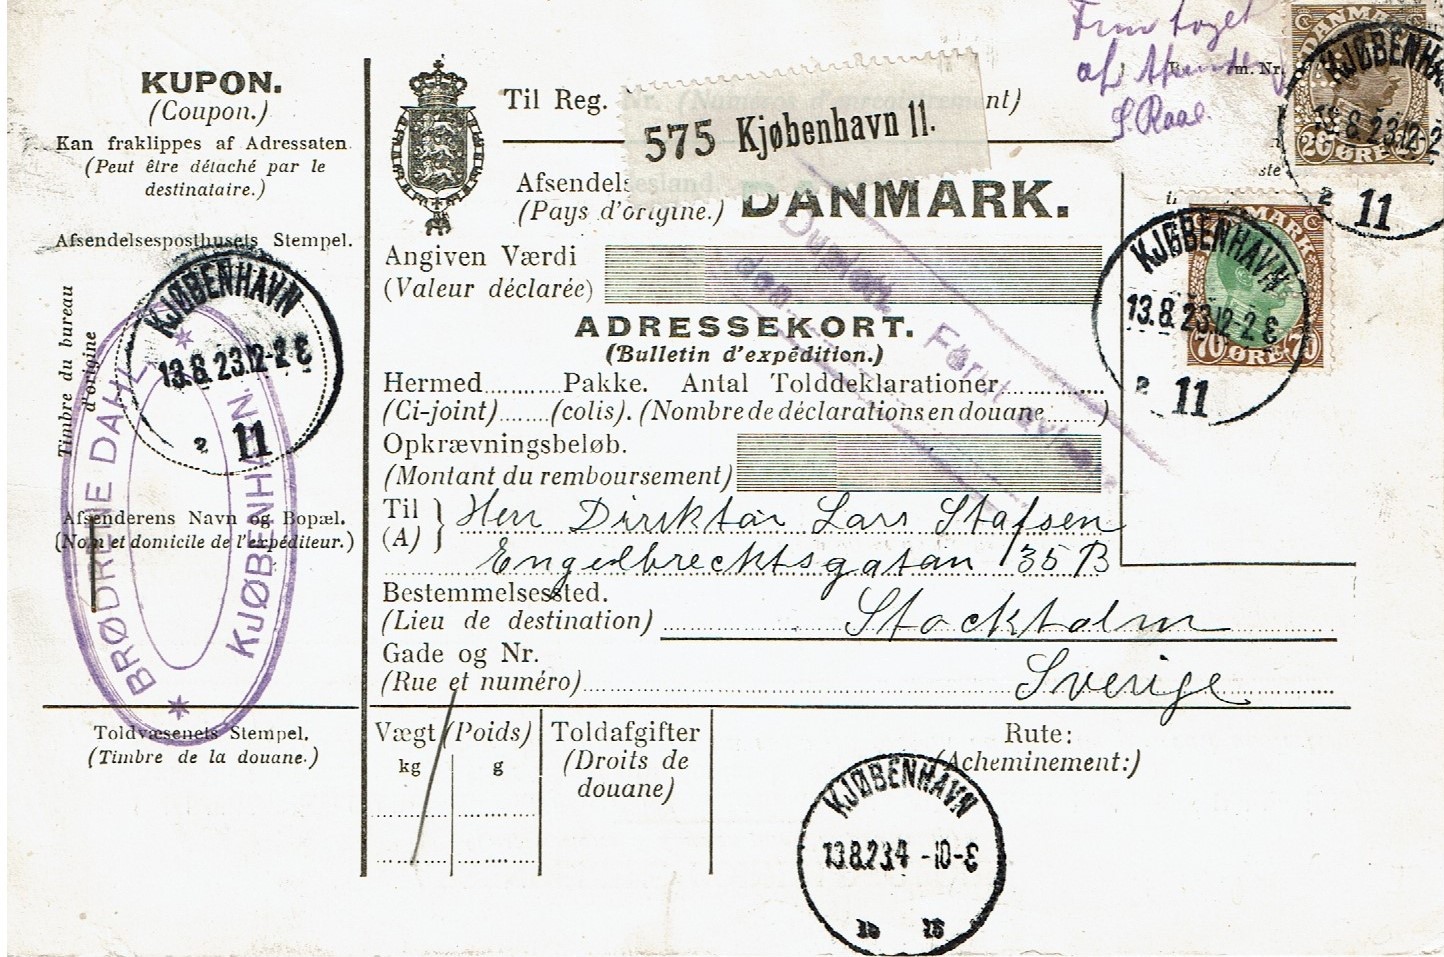 KUPON.
(Coupon.)
Kan fraklippes af Adressaten
(Peut être détaché par le
destinataire.)
Afsendelsesposthusets Stempel.
Timbre du bureau
d'origine
KJØBENHAVN
13.8.23.12-2 E
2 11
BRØDRENE DAHL
KJØBENHVN
Afsenderens Navn og Bopæl.
(Nom et domicile de l'expéditeur.)
Toldvæsenets Stempel.
(Timbre de la douane.)
Til Reg. Nr. (Numéros d'enregistrement)
575 Kjøbenhavn 11.
Afsendelsesland.
(Pays d'origine.) DANMARK.
Angiven Værdi
(Valeur déclarée)
ADRESSEKORT.
(Bulletin d'expédition.)
Hermed Pakke. Antal Tolddeklarationer
(Ci-joint) (colis). (Nombre de déclarations en douane )
Opkrævningsbeløb.
(Montant du remboursement)
Til
(A)
Herr Direktør Lars Stafsen
Engelbrecktsgatan 35 B
Bestemmelsessted.
(Lieu de destination) Stockholm
Gade og Nr.
(Rue et numéro) Sverige
Vægt (Poids)
kg g
Toldafgifter
(Droits de
douane)
Rute:
(Acheminement:)
KJØBENHAVN
13.8.23 4 -10-E
af
S. Raae.
m. Nr.
DANMARK
20 ØRE
KJØBENHAVN
13.8.23.12-2
2 11
DANMARK
70 ØRE 70
KJØBENHAVN
13.8.23.12-2 E
2 11